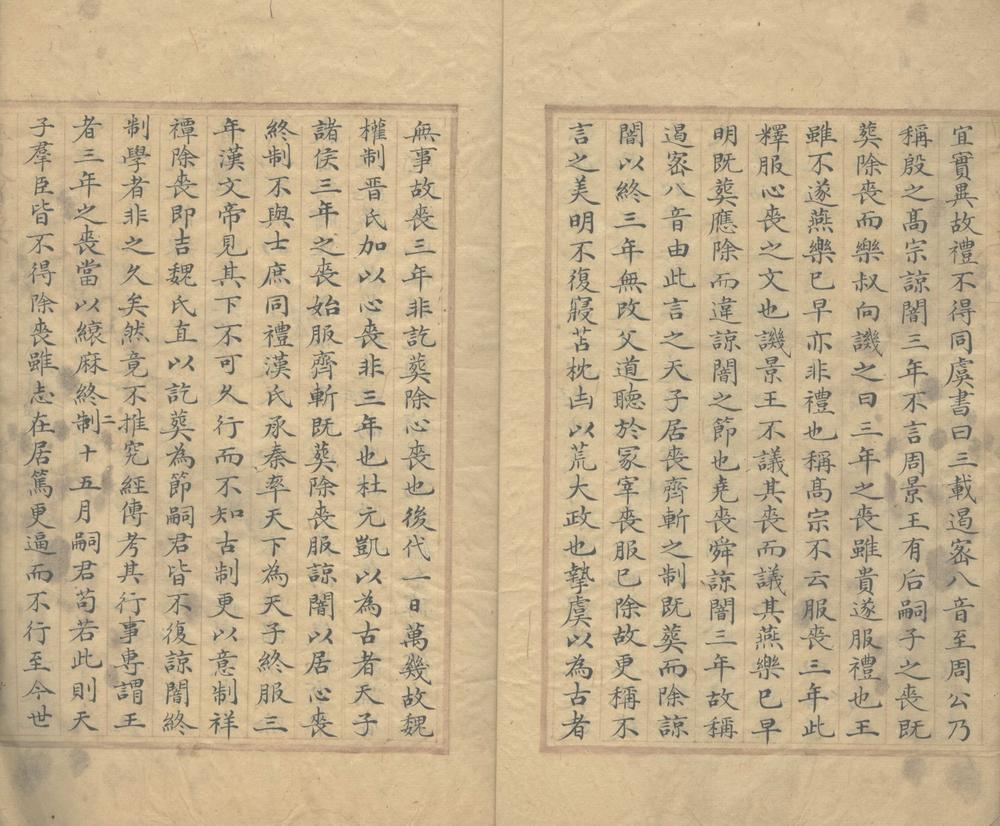 宜實異故禮不得同虞書曰三載遏宻八音至周公乃
稱殷之髙宗諒闇三年不言周景王有后嗣子之喪既
葬除喪而樂叔向譏之曰三年之喪雖貴遂服禮也王
雖不遂燕樂巳早亦非禮也稱髙宗不云服喪三年此
釋服心喪之文也譏景王不議其喪而議其燕樂巳早
明既葬應除而違諒闇之節也堯喪舜諒闇三年故稱
遏宻八音由此言之天子居喪齊斬之制既葬而除諒
闇以終三年無改父道聽於冢宰喪服巳除故更稱不
言之美明不復寢苫枕凷以荒大政也摯虞以為古者
無事故喪三年非訖葬除心喪也後代一日萬幾故魏
權制晉氏加以心喪非三年也杜元凱以為古者天子
諸侯三年之喪始服齊斬既葬除喪服諒闇以居心喪
終制不與士庶同禮漢氏承秦率天下為天子終服三
年漢文帝見其下不可久行而不知古制更以意制祥
禫除喪即吉魏氏直以訖葬為節嗣君皆不復諒闇終
制學者非之久矣然竟不推究經傳考其行事專謂王
者三年之喪當以縗麻終制二十五月嗣君苟若此則天
子羣臣皆不得除喪雖志在居篤更逼而不行至今世